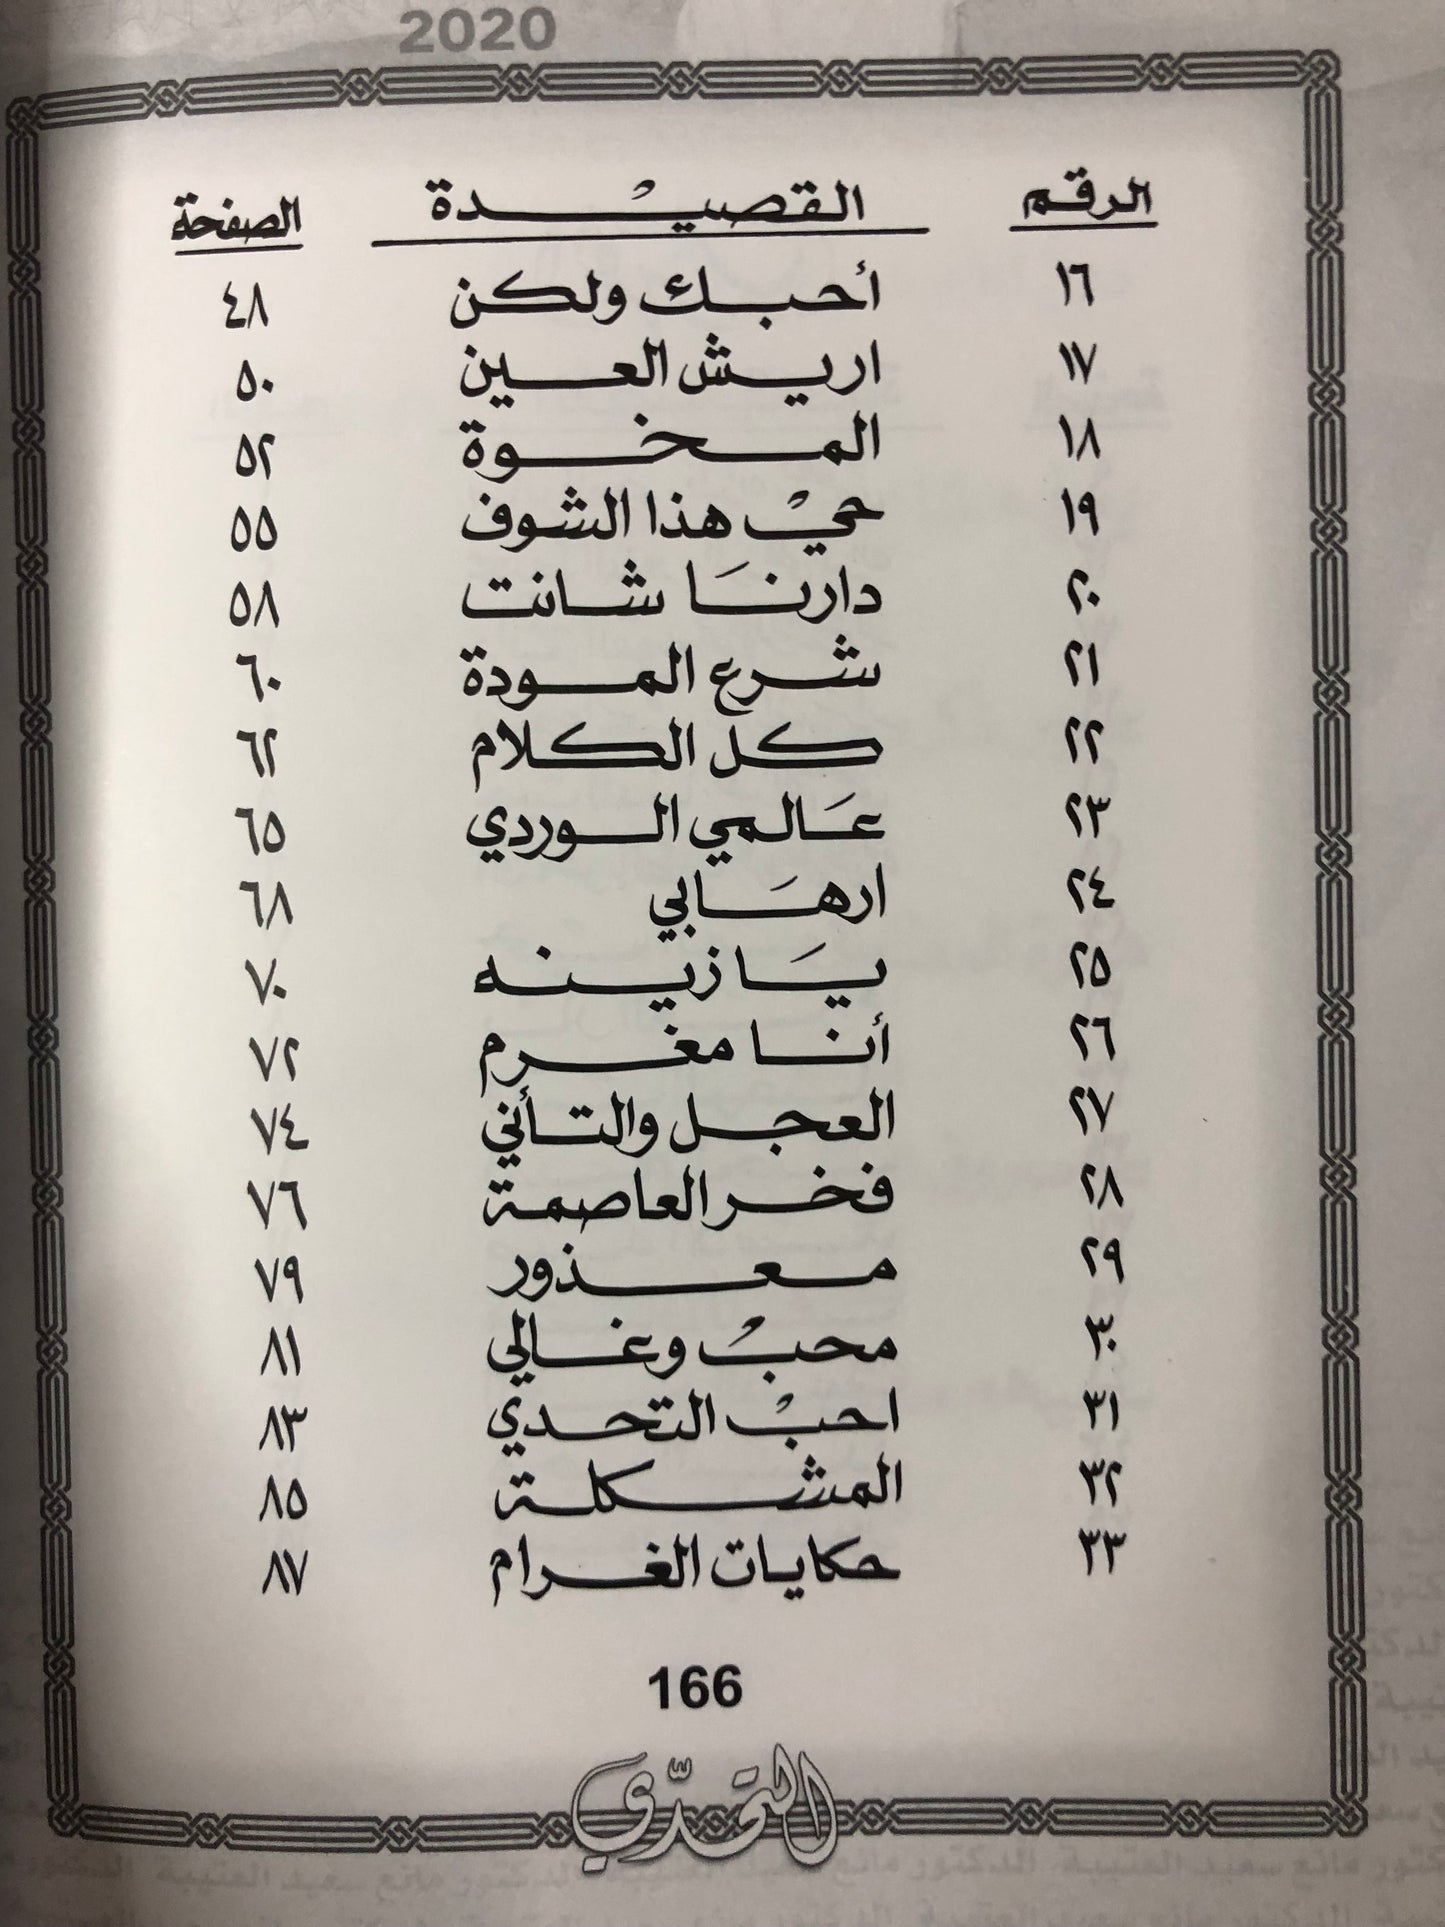 2020
الرقم القصيدة الصفحة
١٦ أحبك ولكن ٤٨
١٧ اريش العين ٥٠
١٨ المخوة ٥٢
١٩ حيْ هذا الشوف ٥٥
٢٠ دارنَا شانت ٥٨
٢١ شرع المودة ٦٠
٢٢ كل الكلام ٦٢
٢٣ عَالمي الوردي ٦٥
٢٤ ارهَابي ٦٨
٢٥ يَا زينه ٧٠
٢٦ أنا مغرم ٧٢
٢٧ العجل والتأني ٧٤
٢٨ فخر العاصمة ٧٦
٢٩ معذور ٧٩
٣٠ محبْ وغالي ٨١
٣١ احبْ التحدي ٨٣
٣٢ المشكلة ٨٥
٣٣ حكايات الغرام ٨٧
166
التحدّي